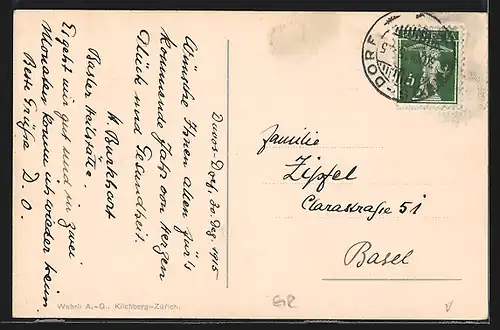 Davos-Dorf, 30. Dez. 1915
Wünsche Ihnen allen für's
kommende Jahr von Herzen
Glück und Gesundheit.
H. Burkhart
Basler Heilstätte.
Es geht mir gut und in zwei
Monaten komm ich wieder heim.
Beste Grüsse D. O.
DORF
Familie
Zipfel
Clarastraße 51
Basel
Wehrli A.-G., Kilchberg-Zürich.
GR